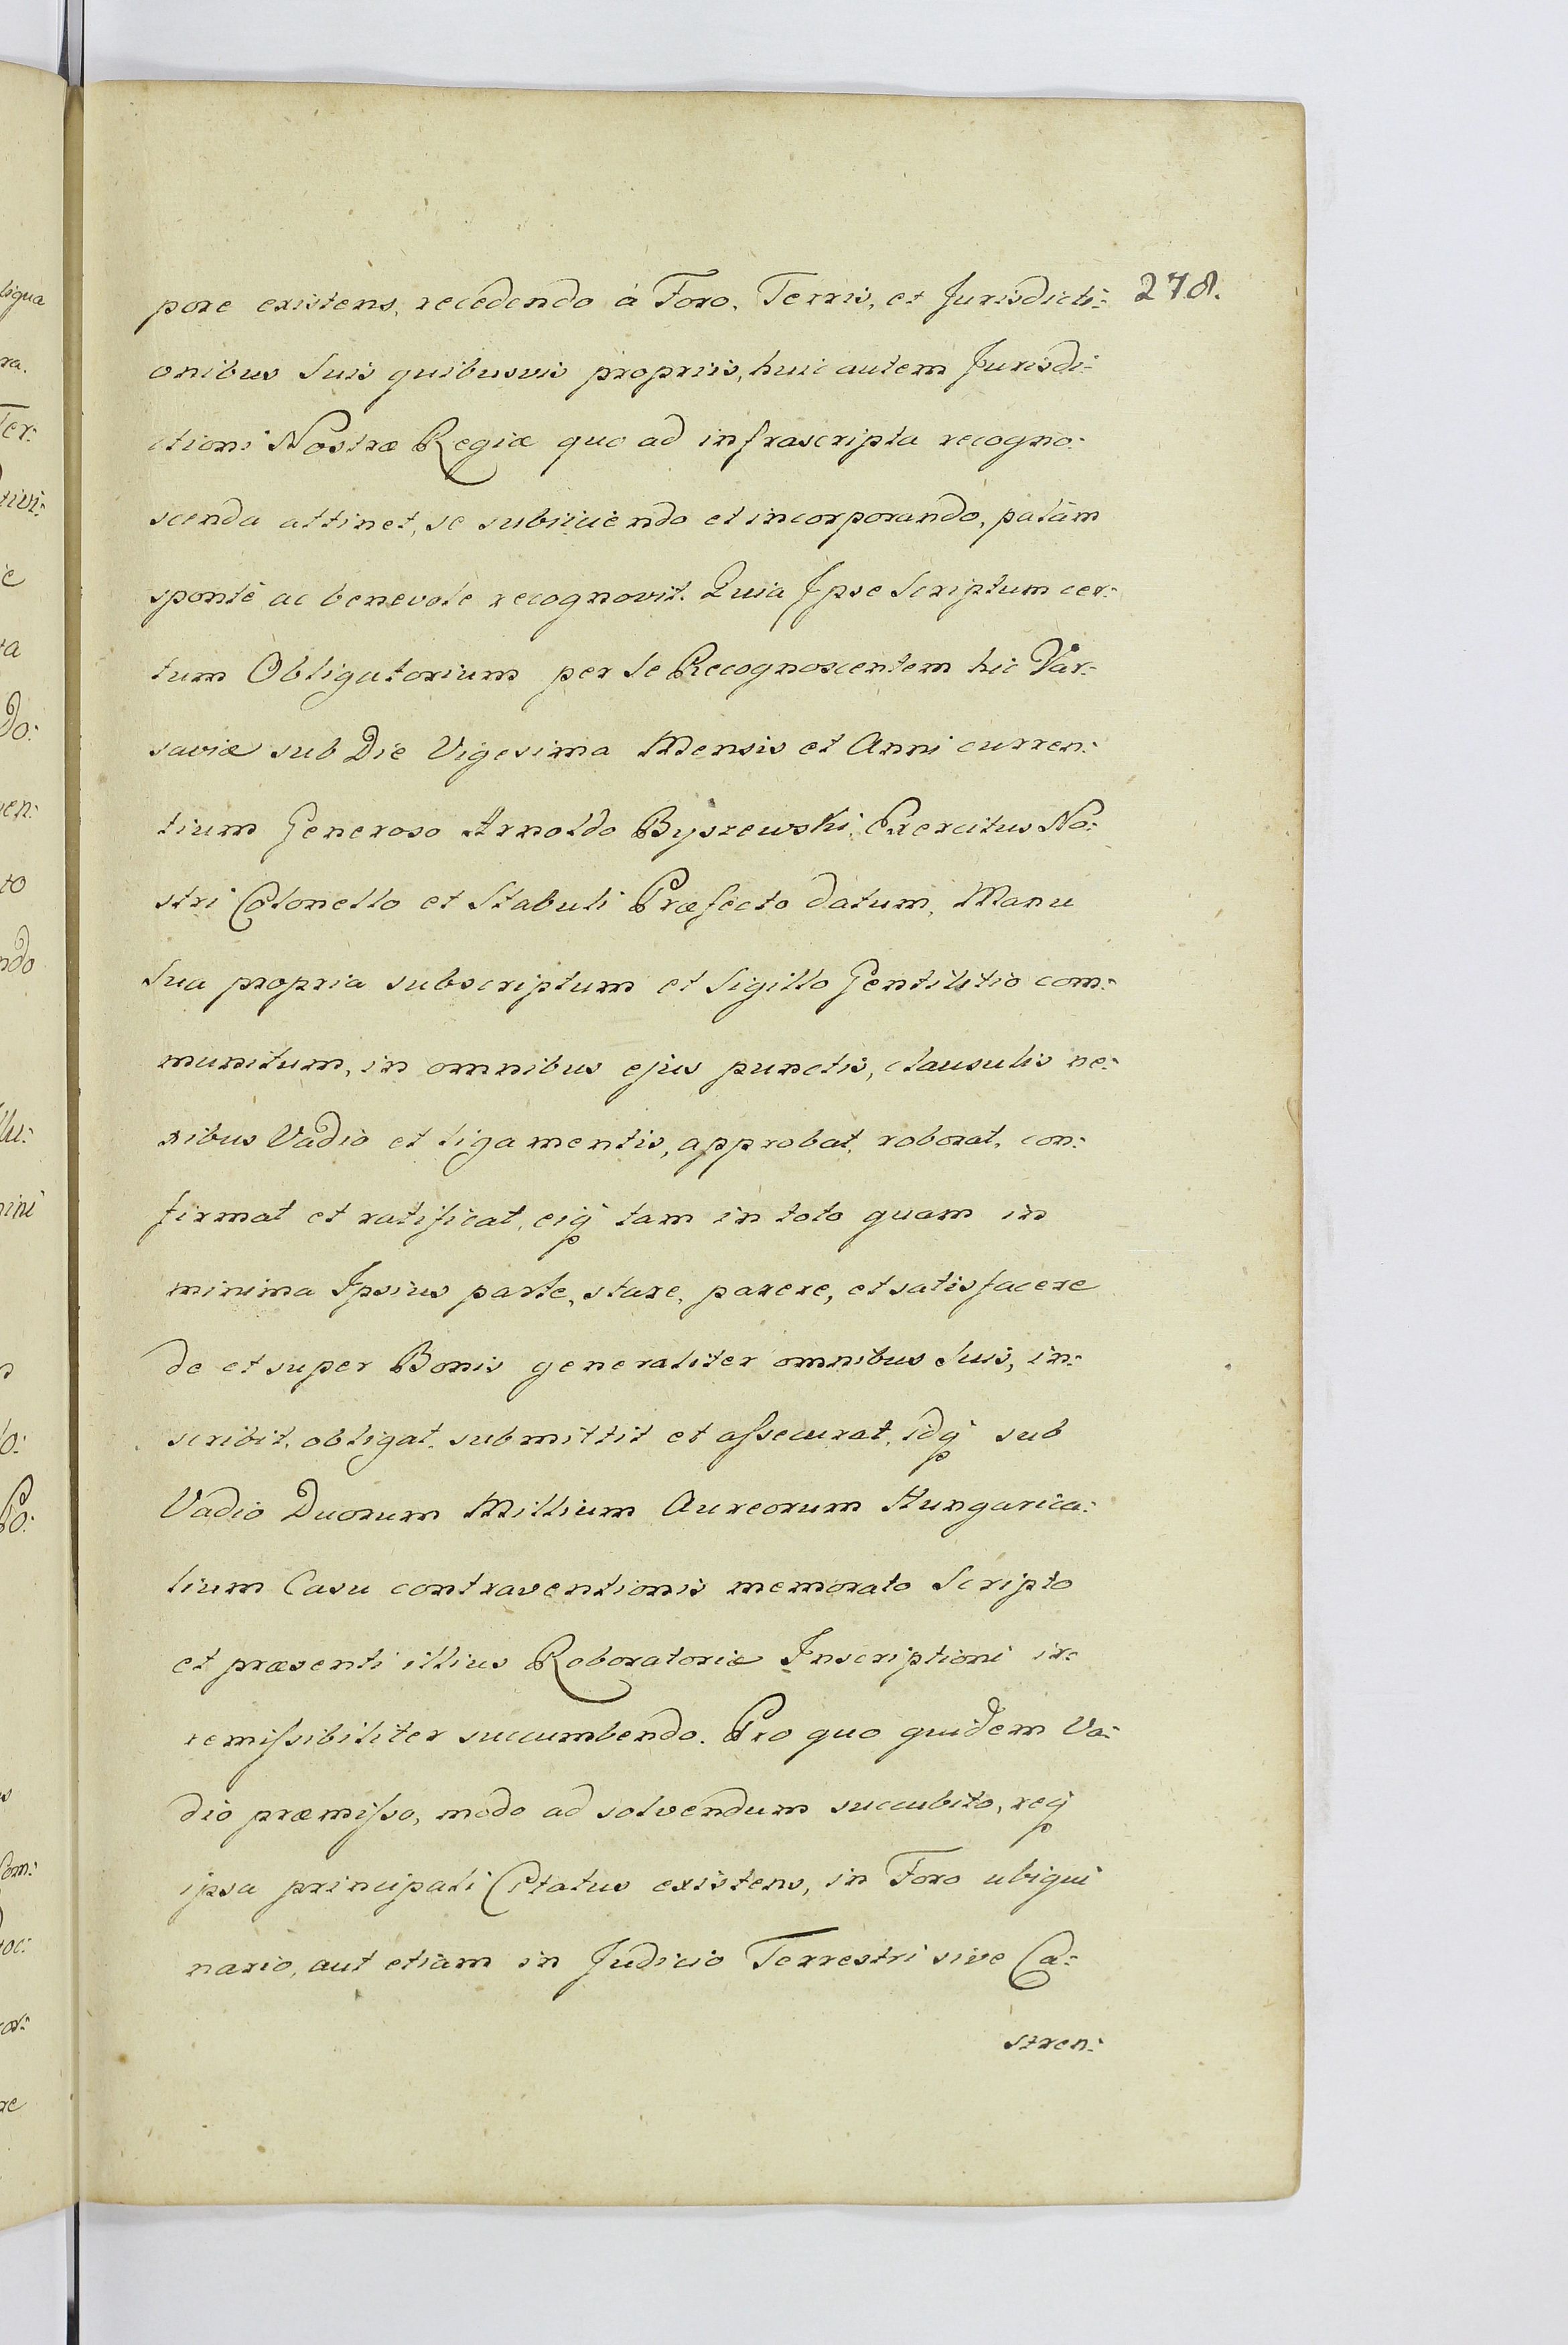 278.
pore existens, recedendo à Foro, Terris, et Jurisdicti:
onibus Suis quibusvis propriis, huic autem Jurisdi:
ctioni Nostræ Regiæ quo ad infrascripta recogno:
scenda attinet, se subiiciendo et incorporando, palàm
spontè ac benevolè recognovit. Quia Ipse Scriptum cer:
tum Obligatorium per Se Recognoscentem hic Var:
saviæ sub Die Vigesima Mensis et Anni curren:
tium Generoso Arnoldo Byszewski, Exercitus No:
stri Colonello et Stabuli Præfecto datum, Manu
Sua propria subscriptum et Sigillo Gentilitio com:
munitum, in omnibus ejus punctis, clausulis ne:
xibus Vadio et ligamentis, approbat, roborat, con:
firmat et ratificat, eiq, tam in toto quam in
minima Ipsius parte, stare, parere, et satisfacere
de et super Bonis generaliter omnibus Suis, in:
scribit, obligat, submittit et assecurat, idq, sub
Vadio Duorum Millium Aureorum Hungarica:
lium Casu contraventionis memorato Scripto
et præsenti illius Roboratoriæ Inscriptioni ir:
remissibiliter succumbendo. Pro quo quidem Va:
dio præmisso, modo ad solvendum succubito, req,
ipsa principali Citatus existens, in Foro ubiqui
nario, aut etiàm in Judicio Terrestri sive Ca:
stren:
ligua
ra.
Ter:
tivi:
e
ra
Do:
ven:
to
ndo
llu:
nini
n
lo:
Po:
s
Com:
toc:
cor:
re